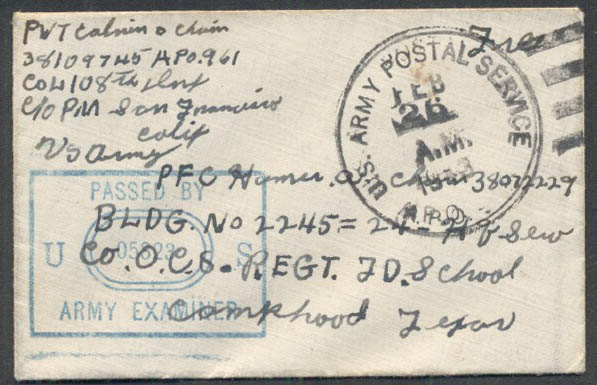 PVT Calvin O Chism
38109745 APO.961
Co L 108th Inf
C/O PM San Francisco
Calif
US Army
Free
U.S. ARMY POSTAL SERVICE
FEB
26
A.M.
1943
A.P.O.
PASSED BY
U 05823 S
ARMY EXAMINER
PFC Homer O. Chism 38022229
BLDG. No 2245 =
Co. O.C.S. REGT. T D. School
Camphood Texas